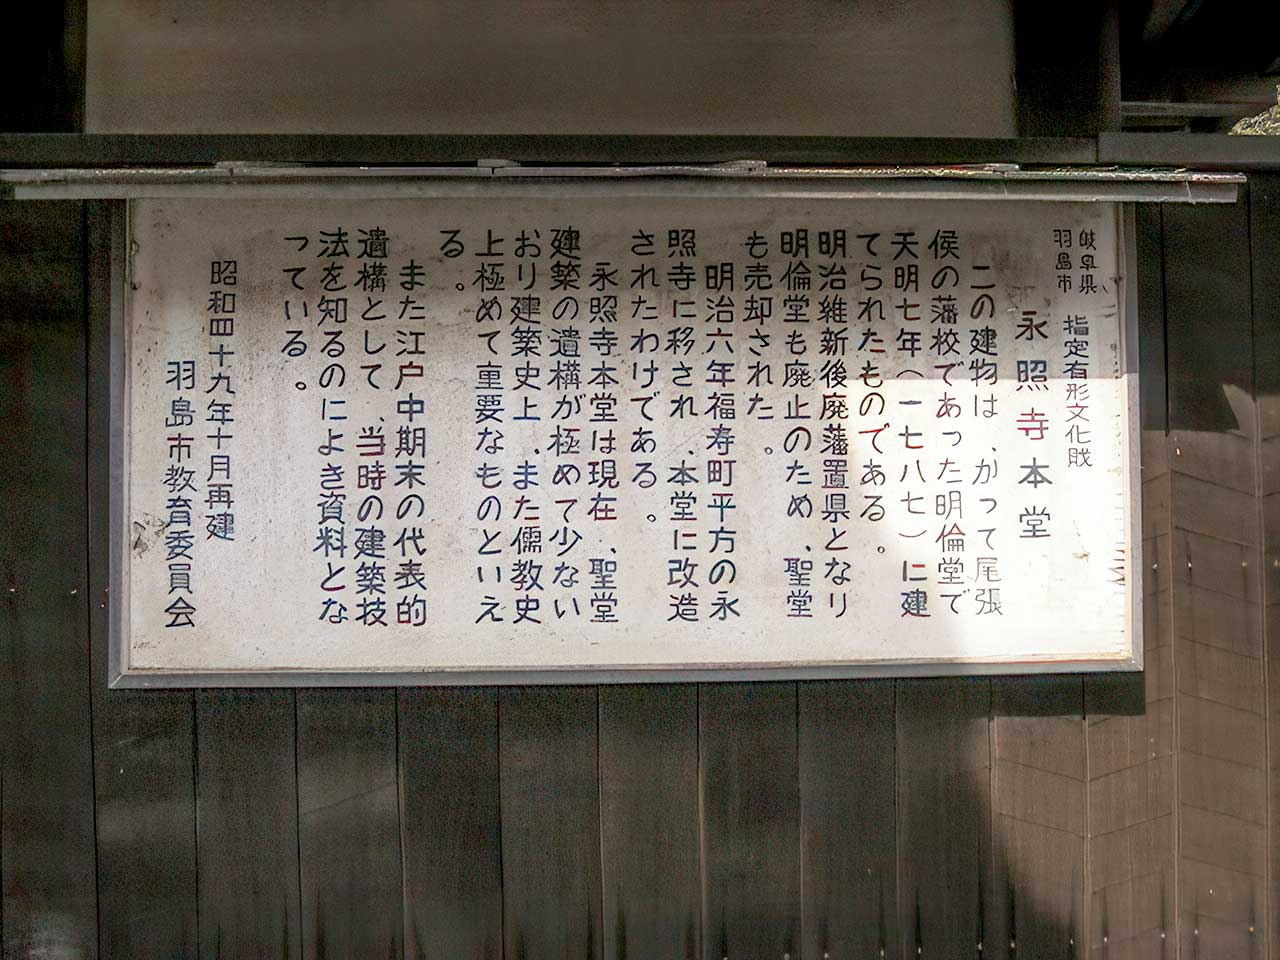 岐阜県
羽島市
指定有形文化財
永照寺本堂
この建物は、かって尾張
侯の藩校であった明倫堂で
天明七年(一七八七)に建
てられたものである。
明治維新後廃藩置県となり
明倫堂も廃止のため、聖堂
も売却された。
明治六年福寿町平方の永
照寺に移され、本堂に改造
されたわけである。
永照寺本堂は現在、聖堂
建築の遺構が極めて少ない
おり建築史上、また儒教史
上極めて重要なものといえ
る。
また江戸中期末の代表的
遺構として、当時の建築技
法を知るのによき資料とな
っている。
昭和四十九年十月再建
羽島市教育委員会